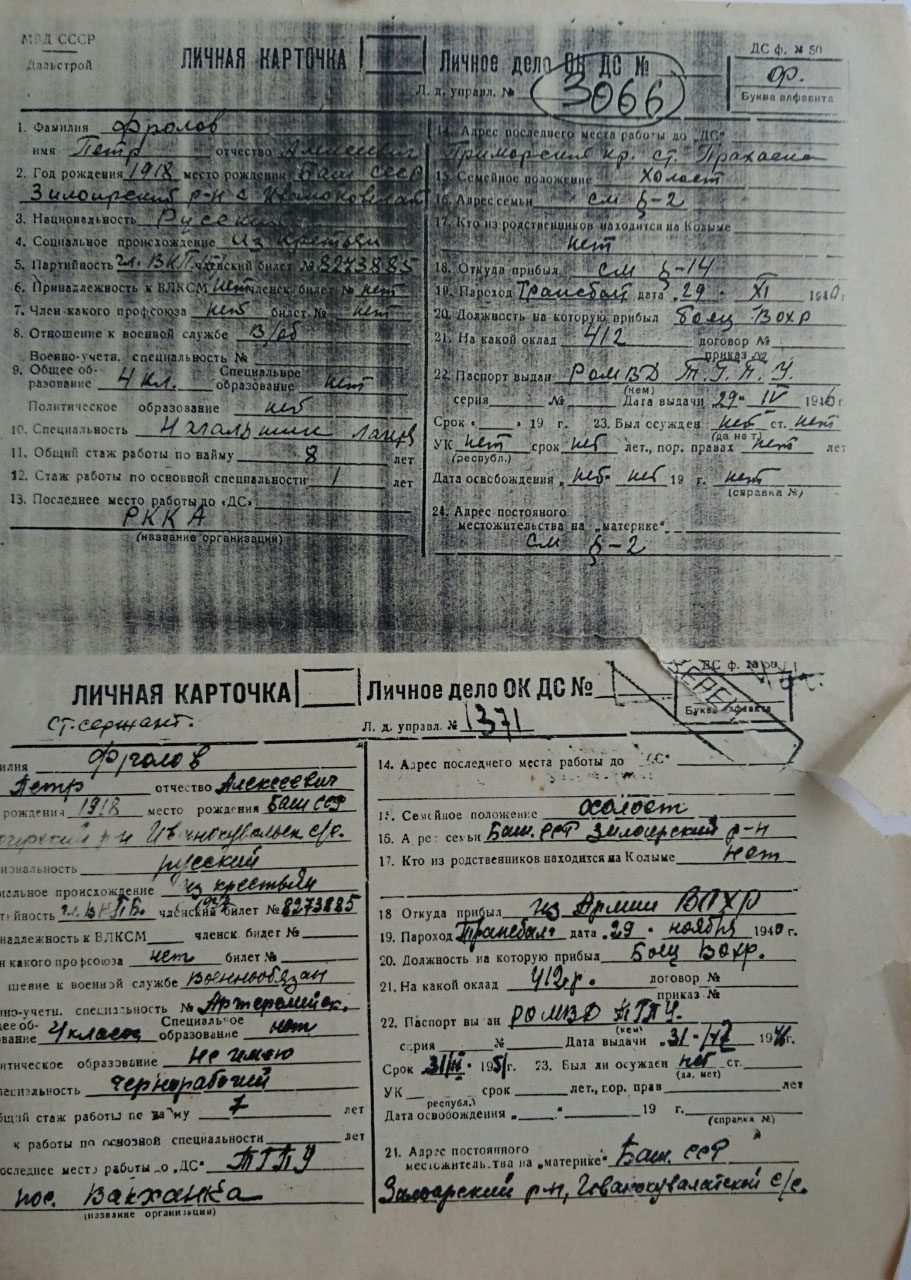 МВД СССР
Дальстрой
ЛИЧНАЯ КАРТОЧКА
Личное дело ОК ДС №
3066
Л. д. управл. №
ДС ф. № 50
Ф.
Буква алфавита
1. Фамилия Фролов
имя Петр отчество Алексеевич
2. Год рождения 1918 место рождения Баш ССР
3. Национальность Русский
4. Социальное происхождение из крестьян
5. Партийность чл. ВКП членский билет № 8273885
6. Принадлежность к ВЛКСМ нет членск. билет № нет
7. Член какого профсоюза нет билет № нет
8. Отношение к военной службе В/об
Военно-учетн. специальность №
9. Общее образование 4 кл. Специальное образование нет
Политическое образование нет
10. Специальность
11. Общий стаж работы по найму 8 лет
12. Стаж работы по основной специальности 1 лет
13. Последнее место работы до „ДС“
РККА
(название организации)
14. Адрес последнего места работы до „ДС“
Приморский кр. ст.
15. Семейное положение холост
16. Адрес семьи см §-2
17. Кто из родственников находится на Колыме
нет
18. Откуда прибыл см §-14
19. Пароход Трансбалт дата „29“ XI 194 г.
20. Должность на которую прибыл боец Вохр
21. На какой оклад 412 договор №
приказ №
22. Паспорт выдан РОМВД Т.Г.П.У.
(кем)
серия № Дата выдачи 29 - IV 1946 г.
Срок „ “ 19 г. 23. Был осужден нет ст. нет
(да нет)
УК нет срок нет лет., пор. правах нет лет
(республ.)
Дата освобождения „нет“ нет 19 г. нет
(справка №)
24. Адрес постоянного
местожительства на „материке“
см §-2
ЛИЧНАЯ КАРТОЧКА
Личное дело ОК ДС №
ДС ф. № 50
Буква алфавита
Ст. сержант.
Л. д. управл. № 1371
илия Фролов
Петр отчество Алексеевич
рождения 1918 место рождения Баш ССР
р-н с/с.
иональность русский
иальное происхождение из крестьян
тийность чл. ВКПБ. членский билет № 8273885
надлежность к ВЛКСМ членск. билет №
н какого профсоюза нет билет №
шение к военной службе Военнообязан
нно-учетн. специальность №
щее образование 4 класса Специальное образование нет
итическое образование Не имею
пециальность чернорабочий
бщий стаж работы по найму 7 лет
к работы по основной специальности лет
оследнее место работы до „ДС“ ТГПУ
пос.
(название организации)
14. Адрес последнего места работы до „ДС“
15. Семейное положение холост
16. Адрес семьи Баш. ССР Зилаирский р-н
17. Кто из родственников находится на Колыме нет
18 Откуда прибыл из Армии ВПХР
19. Пароход Трансбал дата „29“ ноября 194 г.
20. Должность на которую прибыл Боец Вохр.
21. На какой оклад 412 р. договор №
приказ №
22. Паспорт выдан РОМВД ТГПУ.
(кем)
серия № Дата выдачи „31- 1946 г.
Срок 1951 г. 23. Был ли осужден нет ст.
(да, нет)
УК срок лет., пор. прав лет
республ.)
Дата освобождения „ “ 19 г.
(справка №)
24. Адрес постоянного
местожительства на „материке“ Баш. ССР
р-н, с/с.